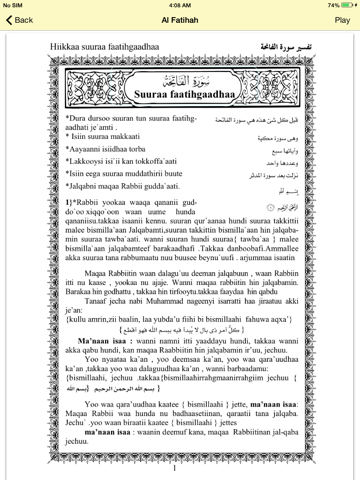 No SIM 4:08 AM 74%
Back Al Fatihah Play
Hiikkaa suuraa faatihgaadhaa تفسير سورة الفاتحة
سُورَةُ الْفَاتِحَةِ
Suuraa faatihgaadhaa
*Dura dursoo suuran tun suuraa faatihg- قبل كل شئ هذه هي سورة الفاتحة
aadhati je`amti .
* Isiin suuraa makkaati وهى سورة مكية
*Aayaanni isiidhaa torba وآياتها سبع
*Lakkooysi isi`ii kan tokkoffa`aati وعددها واحد
*Isiin eega suuraa muddathirii buute نزلت بعد سورة المدثر
*Jalqabni maqaa Rabbii gudda`aati.
1)*Rabbii yookaa waaqa qananii gud-
do`oo xiqqo`oon waan uume hunda
qananiisu.takkaa isaanii kennu. suuran qur`aanaa hundi suuraa takkittii
malee bismilla`aan Jalqabamti,suuran takkittin bismilla`aan hin jalqaba-
min suuraa tawba`aati. wanni suuran hundi suuraa{ tawba`aa } malee
bismilla`aan jalqabamteef barakaadhafi .Takkaa danboobafi.Ammallee
akka suuraa tana rabbumaatu nuu buusee beynu`ufi . arjummaa isaatin
Maqaa Rabbiitin waan dalagu`uu deeman jalqabuun , waan Rabbiin
itti nu kaase , yookaa nu ajaje. Wanni maqaa rabbiitin hin jalqabamin.
Barakaa hin godhattu , takkaa hin tirfooytu.takkaa faaydaa hin qabdu
Tanaaf jecha nabi Muhammad nageenyi isarratti haa jiraatuu akki
je'an:
{kullu amrin,zii baalin, laa yubda'u fiihi bi bismillaahi fahuwa aqxa'}
{ كل أمر ذى بال لا يبدأ فيه ببسم الله فهو أقطع }
Ma'naan isaa : wanni namni itti yaaddayu hundi, takkaa wanni
akka qabu hundi, kan maqaa Raabbiitin hin jalqabamin ir'uu, jechuu.
Yoo nyaataa ka'an , yoo deemsaa ka'an, yoo waa qara'uudhaa
ka'an ,takkaa yoo waa dalaguudhaa ka'an , wanni barbaadamu:
{bismillaahi, jechuu .takkaa{bismillaahirrahgmaanirrahgiim jechuu {
{ بسم الله الرحمن الرحيم } {بسم الله
Yoo waa qara'uudhaa kaatee { bismillaahi } jette, ma'naan isaa:
Maqaa Rabbii waa hunda nu badhaasetiinan, qaraatii tana jalqaba.
Jechu` .yoo waan biraatii kaatee { bismillaahi } jettes
ma'naan isaa : waanin deemuf kana, maqaa Rabbiitinan jal-qaba
jechuu.
1